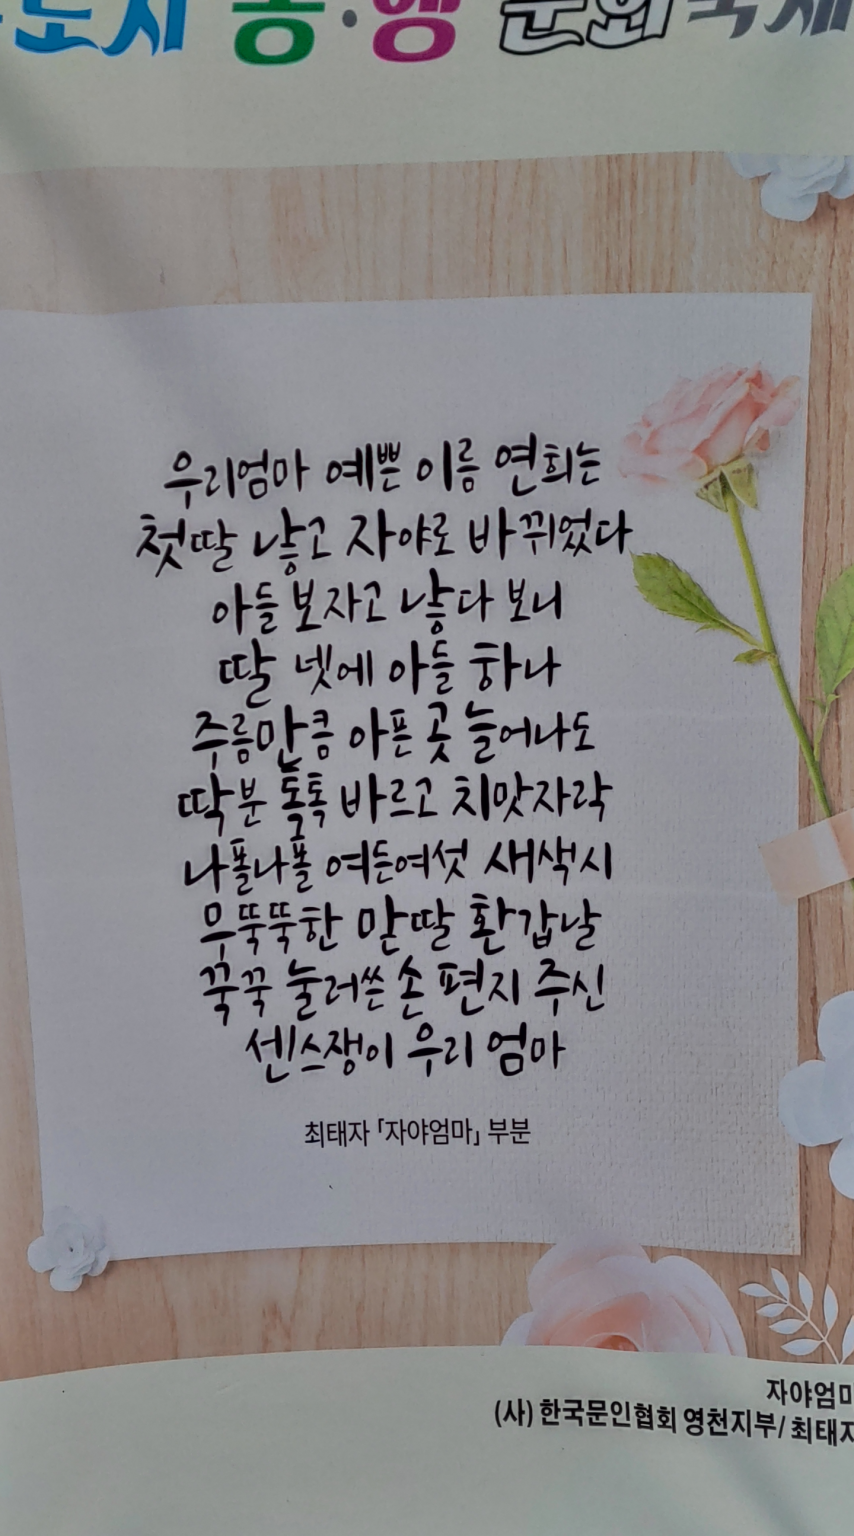 동·행
우리엄마 예쁜 이름 연희는
첫딸 낳고 자야로 바뀌었다
아들 보자고 낳다 보니
딸 넷에 아들 하나
주름만큼 아픈 곳 늘어나도
딱분 톡톡 바르고 치맛자락
나폴나폴 여든여섯 새색시
무뚝뚝한 맏딸 환갑날
꾹꾹 눌러쓴 손 편지 주신
센스쟁이 우리 엄마
최태자 「자야엄마」 부분
자야엄마
(사) 한국문인협회 영천지부/ 최태자